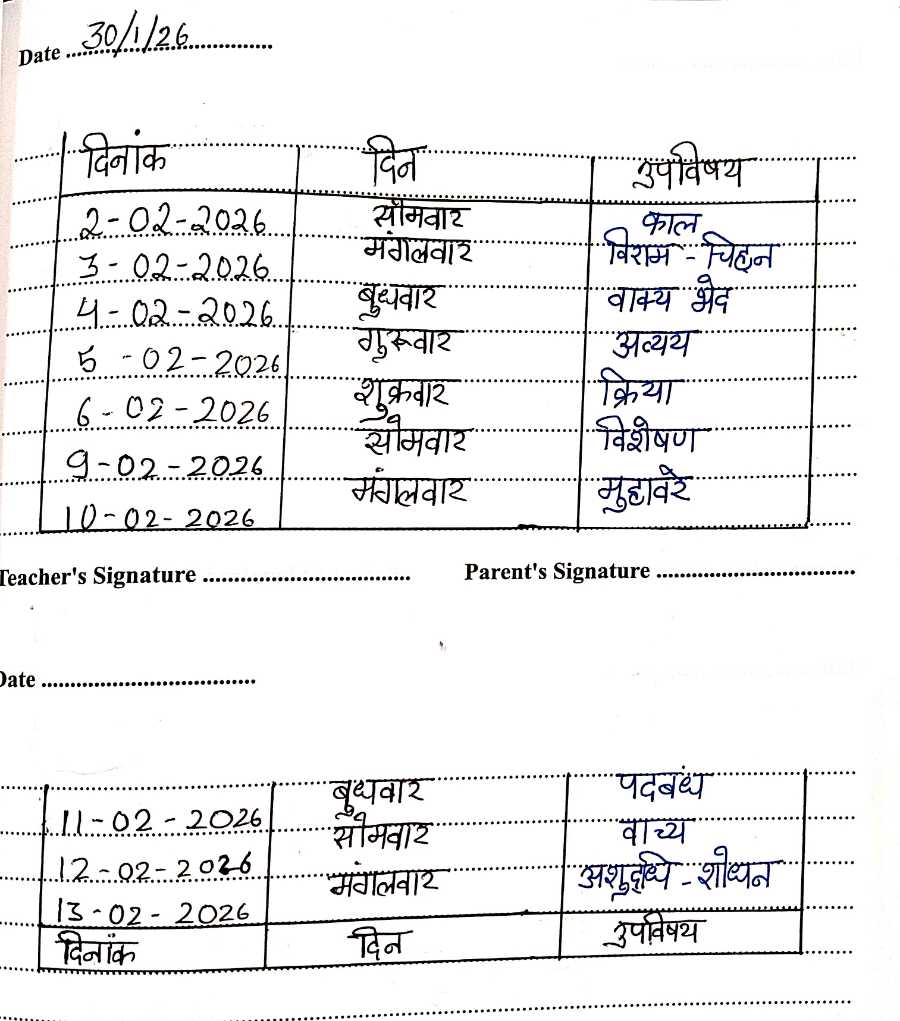 Date 30/1/26
दिनांक दिन उपविषय
2-02-2026 सोमवार काल
3-02-2026 मंगलवार विराम - चिह्न
4-02-2026 बुधवार वाक्य भेद
5-02-2026 गुरूवार अव्यय
6-02-2026 शुक्रवार क्रिया
9-02-2026 सोमवार विशेषण
10-02-2026 मंगलवार मुहावरे
Teacher's Signature Parent's Signature
Date
11-02-2026 बुधवार पदबंध
12-02-2026 सोमवार वाच्य
13-02-2026 मंगलवार अशुद्धि - शोधन
दिनांक दिन उपविषय